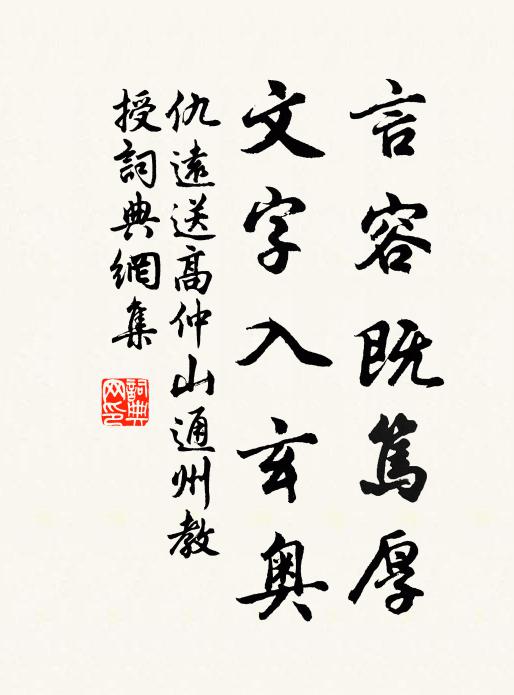 言容既篤厚
文字入玄奥
仇遠送高仲山通州教
授詞典網集
詞典网印